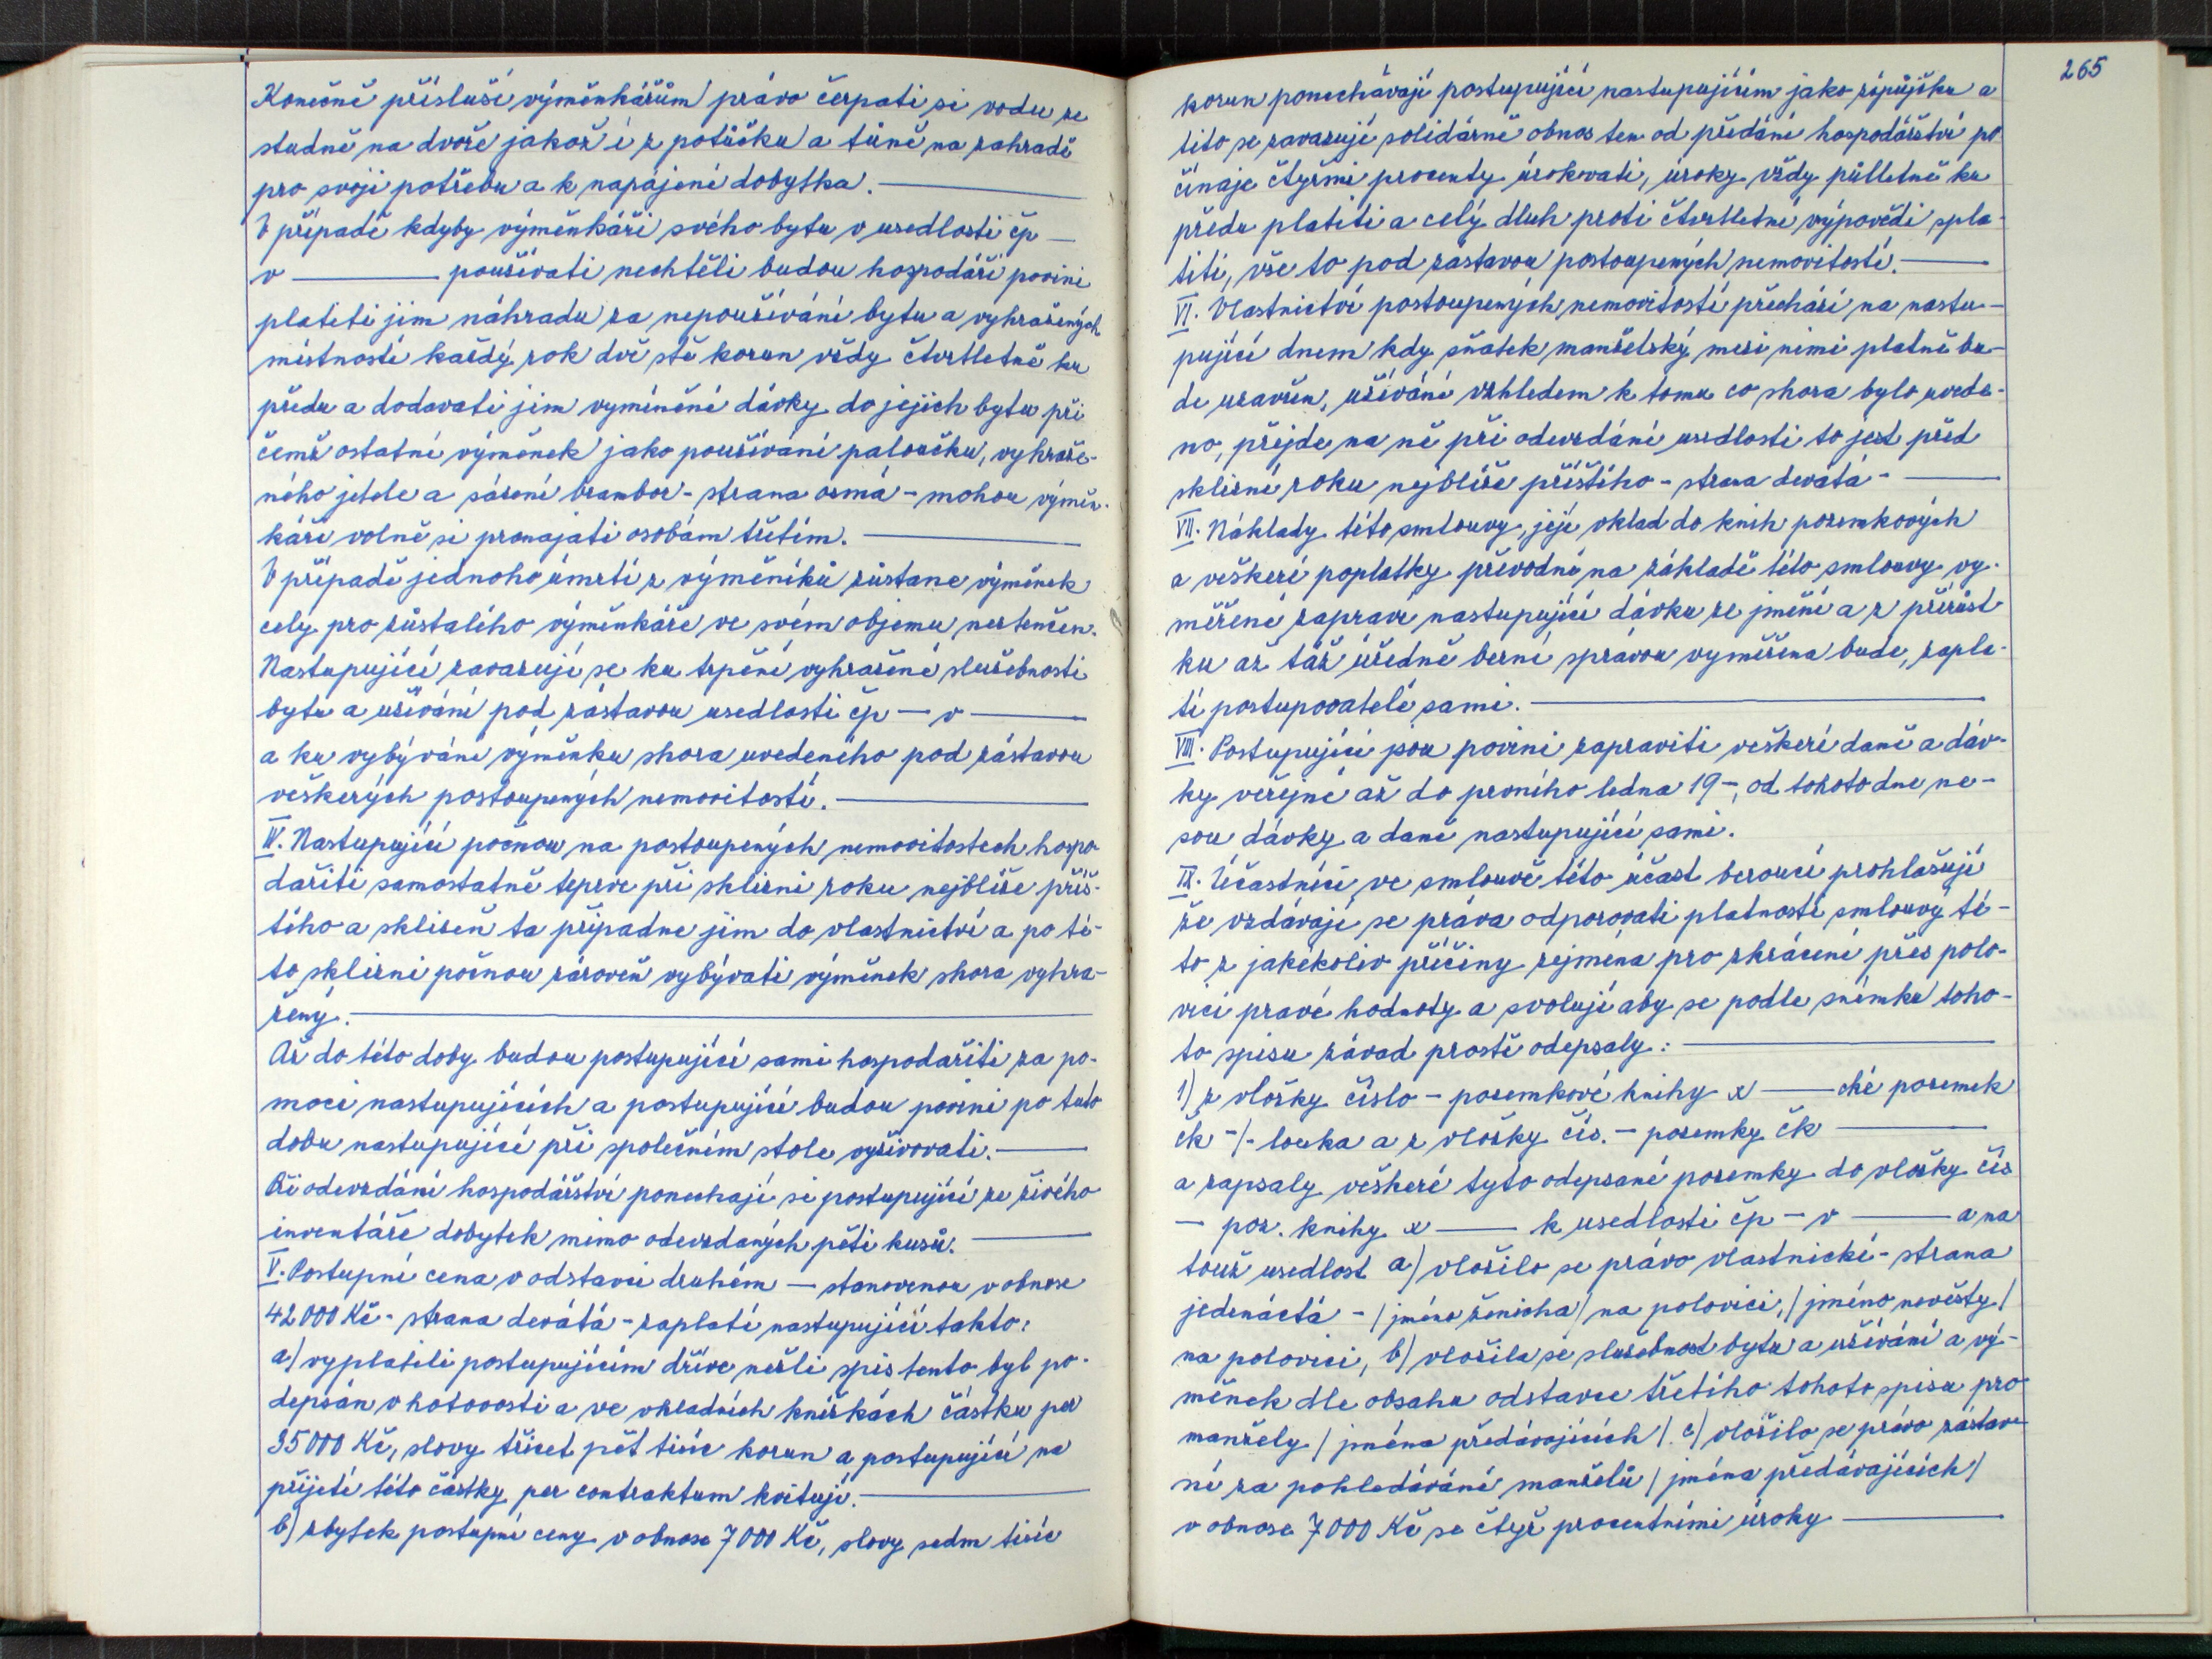 Konečně přísluší výměnkářům právo čerpati si vodu ze
studně na dvoře jakož i z potůčku a tůně na zahradě
pro svoji potřebu a k napájení dobytka. —
V případě kdyby výměnkáři svého bytu v usedlosti čp —
v — používati nechtěli budou hospodáři povini
platiti jim náhradu za nepoužívání bytu a vyhražených
místností každý rok dvě stě korun vždy čtvrtletně ku
předu a dodavati jim vymíněné dávky do jejich bytu při
čemž ostatní výměnek jako používání paloučku, vyhraže-
ného jetele a sázení brambor - strana osmá - mohou výměn-
káři volně si pronajati osobám třetím. —
V případě jednoho úmrtí z výměníků zůstane výměnek
celý pro zůstalého výměnkáře ve svém objemu neztenčen.
Nastupující zavazují se ku trpění vyhražené služebnosti
bytu a užívání pod zástavou usedlosti čp — v —
a ku vybývání výměnku shora uvedeného pod zástavou
veškerých postoupených nemovitostí. —
IV. Nastupující počnou na postoupených nemovitostech hospo-
dařiti samostatně teprve při sklizni roku nejblíže příš-
tého a sklizeň ta připadne jim do vlastnictví a po té-
to sklizni počnou zároveň vybývati výměnek shora vyhra-
žený. —
Až do této doby budou postupující sami hospodařiti za po-
moci nastupujících a postupující budou povini po tuto
dobu nastupující při společném stole vyživovati. —
Při odevzdání hospodářství ponechají si postupující ze živého
inventáře dobytek mimo odevzdaných pěti kusů. —
V. Postupní cena v odstavci druhém — stanovenou v obnose
42 000 Kč - strana devátá - zaplatí nastupující takto:
a) vyplatili postupujícím dříve nežli spis tento byl po-
depsán v hotovosti a ve vkladních knížkách částku per
35 000 Kč, slovy třicet pět tisíc korun a postupující na
přijetí této částky per contraktum kvitují. —
b) zbytek postupní ceny v obnose 7 000 Kč, slovy sedm tisíc
265
korun ponechávají postupující nastupujícím jako zápůjčku a
tito se zavazují solidárně obnos ten od předání hospodářství po
čínaje čtyřmi procenty úrokovati, úroky vždy půlletně ku
předu platiti a celý dluh proti čtvrtletní výpovědi spla-
titi, vše to pod zástavou postoupených nemovitostí. —
VI. Vlastnictví postoupených nemovitostí přechází na nastu-
pující dnem kdy sňatek manželský mezi nimi platně bu-
de uzavřen, užívání vzhledem k tomu co shora bylo uvede-
no, přejde na ně při odevzdání usedlosti to jest před
sklizní roku nejblíže příštího - strana devátá - —
VII. Náklady této smlouvy, její vklad do knih pozemkových
a veškeré poplatky převodní na základě této smlouvy vy-
měřené zapraví nastupující dávku ze jmění a z přírůst
ku až táž úředně berní správou vyměřena bude, zapla-
tí postupovatelé sami. —
VIII. Postupující jsou povini zapraviti veškeré daně a dáv-
ky veřejné až do prvního ledna 19—, od tohoto dne ne-
sou dávky a daně nastupující sami.
IX. Účastníci ve smlouvě této účast beroucí prohlašují
že vzdávají se práva odporovati platnosti smlouvy té-
to z jakékoliv příčiny zejména pro zkrácení přes polo-
vici pravé hodnoty a svolují aby se podle snímku toho-
to spisu závad prostě odepsaly: —
1) z vložky číslo — pozemkové knihy x — ché pozemek
čk -/- louka a z vložky čís. — pozemky čk —
a zapsaly veškeré tyto odepsané pozemky do vložky čís
— poz. knihy x — k usedlosti čp — v — a na
touž usedlost a) vložilo se právo vlastnické - strana
jedenáctá - /jméno ženicha/ na polovici, /jméno nevěsty/
na polovici, b) vložila se služebnost bytu a užívání a vý-
měnek dle obsahu odstavce třetího tohoto spisu pro
manžely /jména předávajících/. c) vložilo se právo zástav-
ní za pohledávání manželů /jména předávajících/
v obnose 7 000 Kč se čtyř procentními úroky —